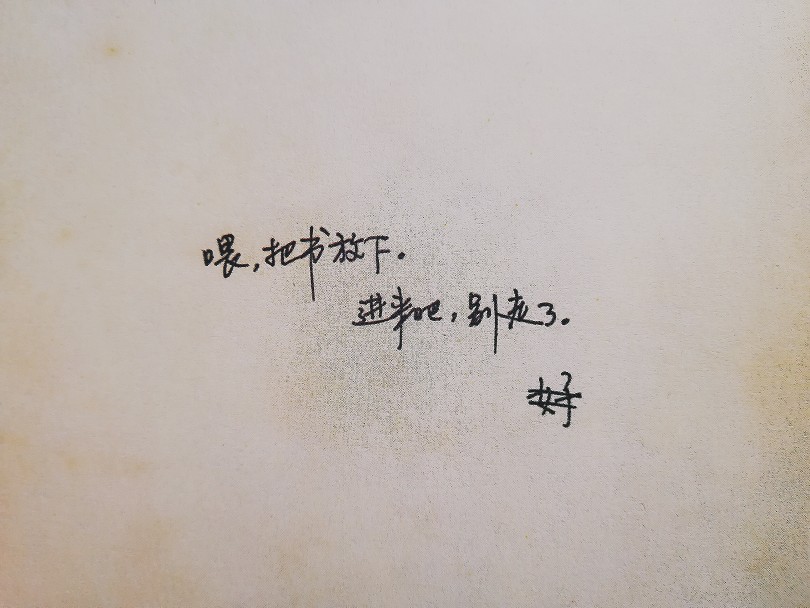 喂,把书放下.
进来吧,别走了.
好